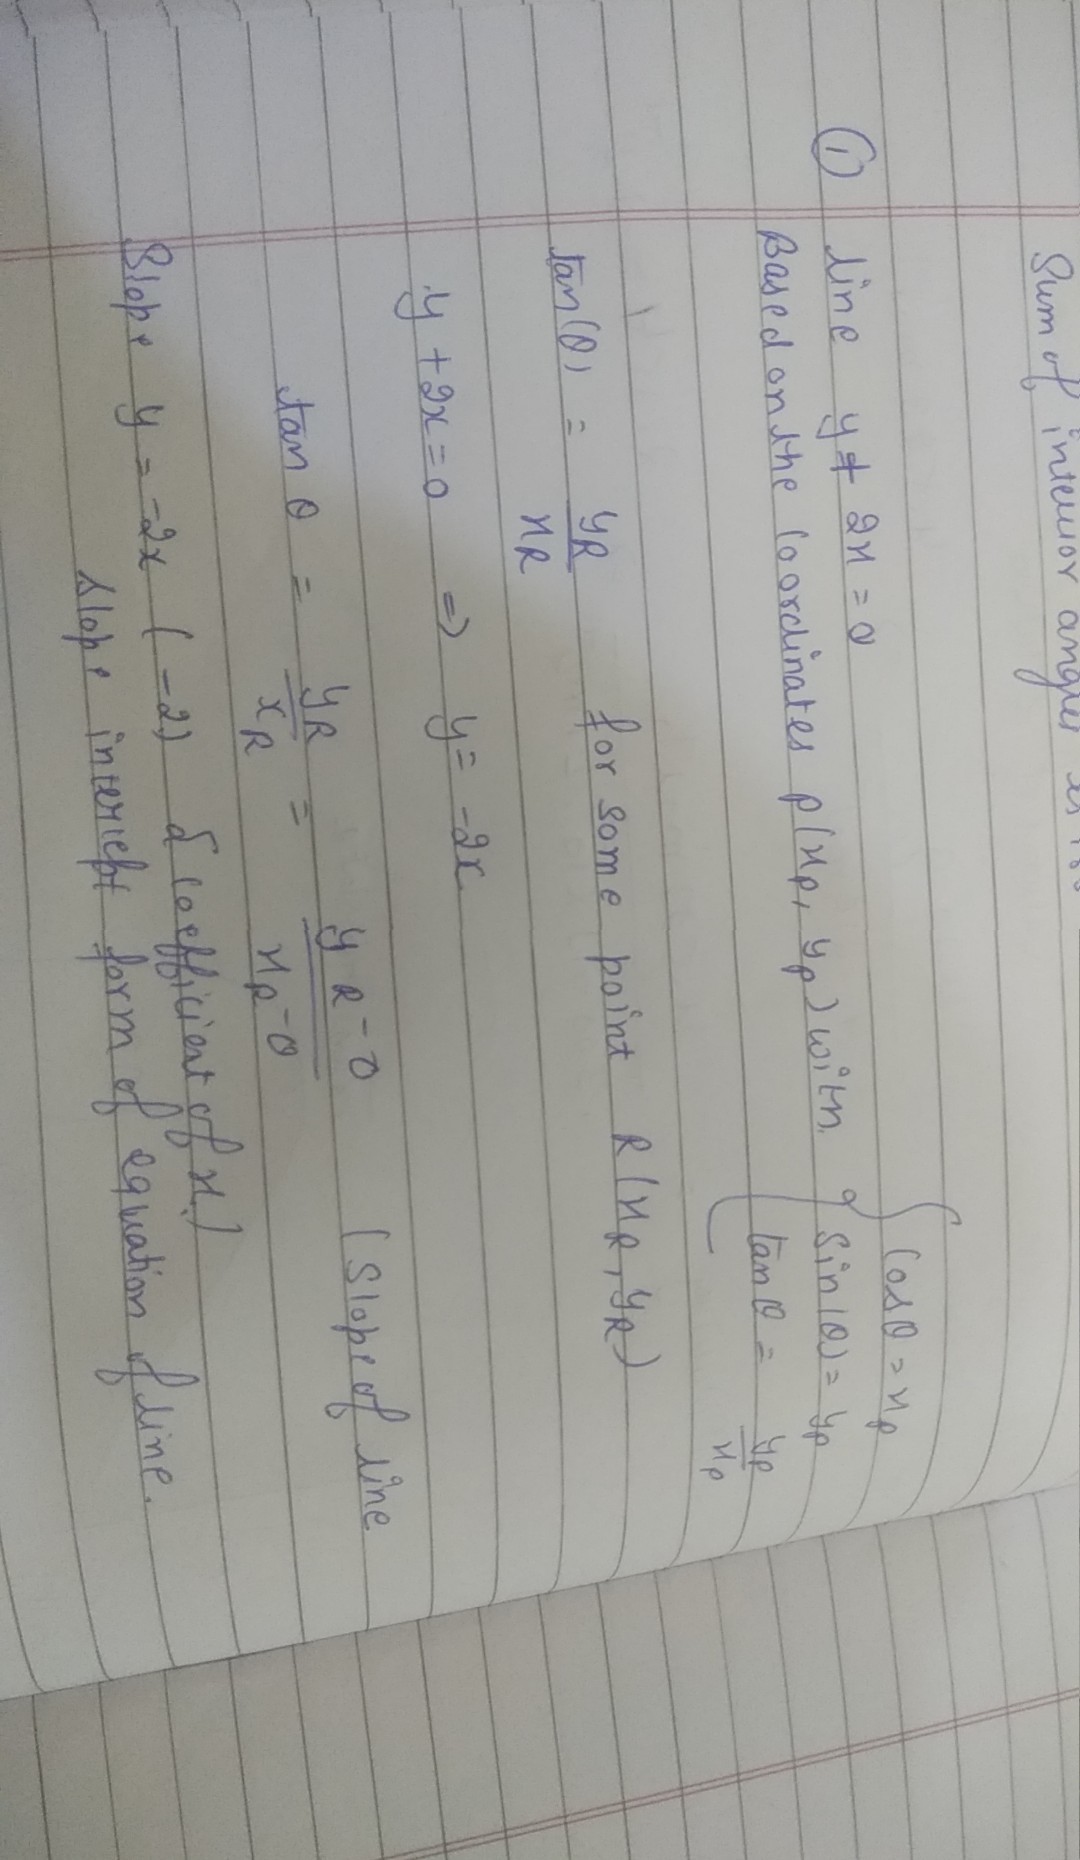 Sum of interior angles is 180
① line y + 2x = 0
Based on the Coordinates P(xp, yp) with { Cosθ = xp
Sin(θ) = yp
tanθ = yp/xp
tan(θ) = yR/xR for some point R(xR, yR)
y + 2x = 0 ⇒ y = -2x
tan θ = yR/xR = yR-0/xR-0 (Slope of line
Slope y = -2x (-2) d coefficient of x.)
slope intercept form of equation of line.